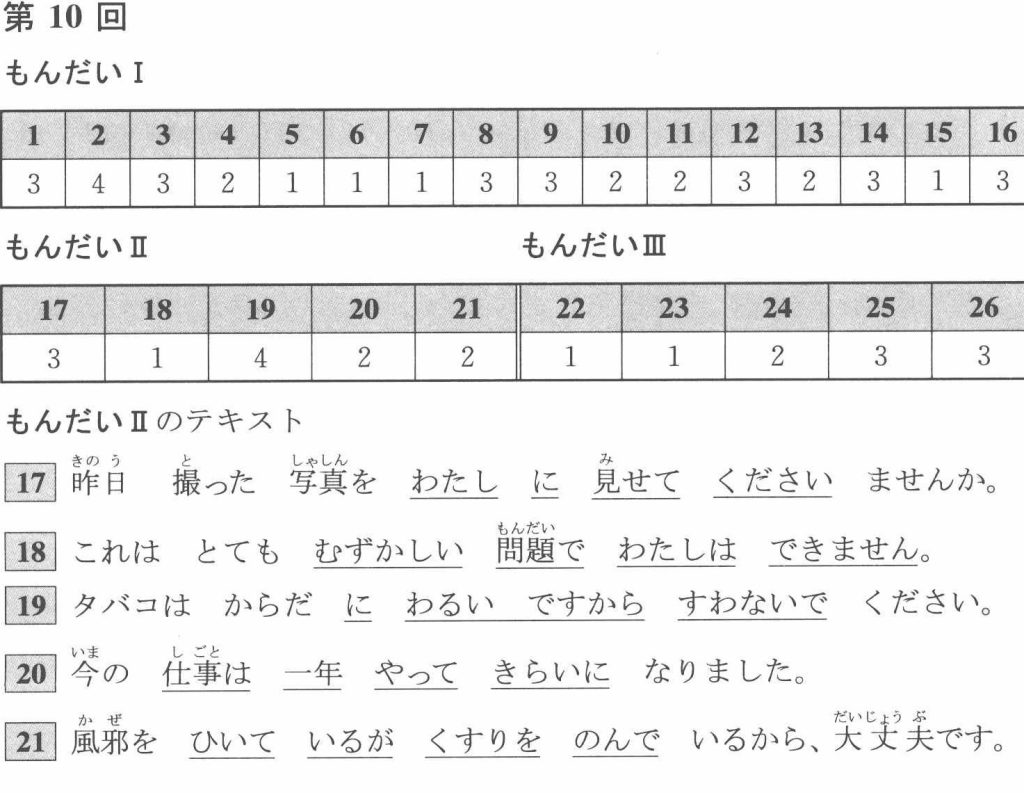 第 10 回
もんだい Ⅰ
1 2 3 4 5 6 7 8 9 10 11 12 13 14 15 16
3 4 3 2 1 1 1 3 3 2 2 3 2 3 1 3
もんだい Ⅱ もんだい Ⅲ
17 18 19 20 21 22 23 24 25 26
3 1 4 2 2 1 1 2 3 3
もんだい Ⅱ のテキスト
きのう と しゃしん み
17 昨日 撮った 写真を わたし に 見せて ください ませんか。
もんだい
18 これは とても むずかしい 問題で わたしは できません。
19 タバコは からだ に わるい ですから すわないで ください。
いま しごと
20 今の 仕事は 一年 やって きらいに なりました。
かぜ だいじょうぶ
21 風邪を ひいて いるが くすりを のんで いるから、大丈夫です。